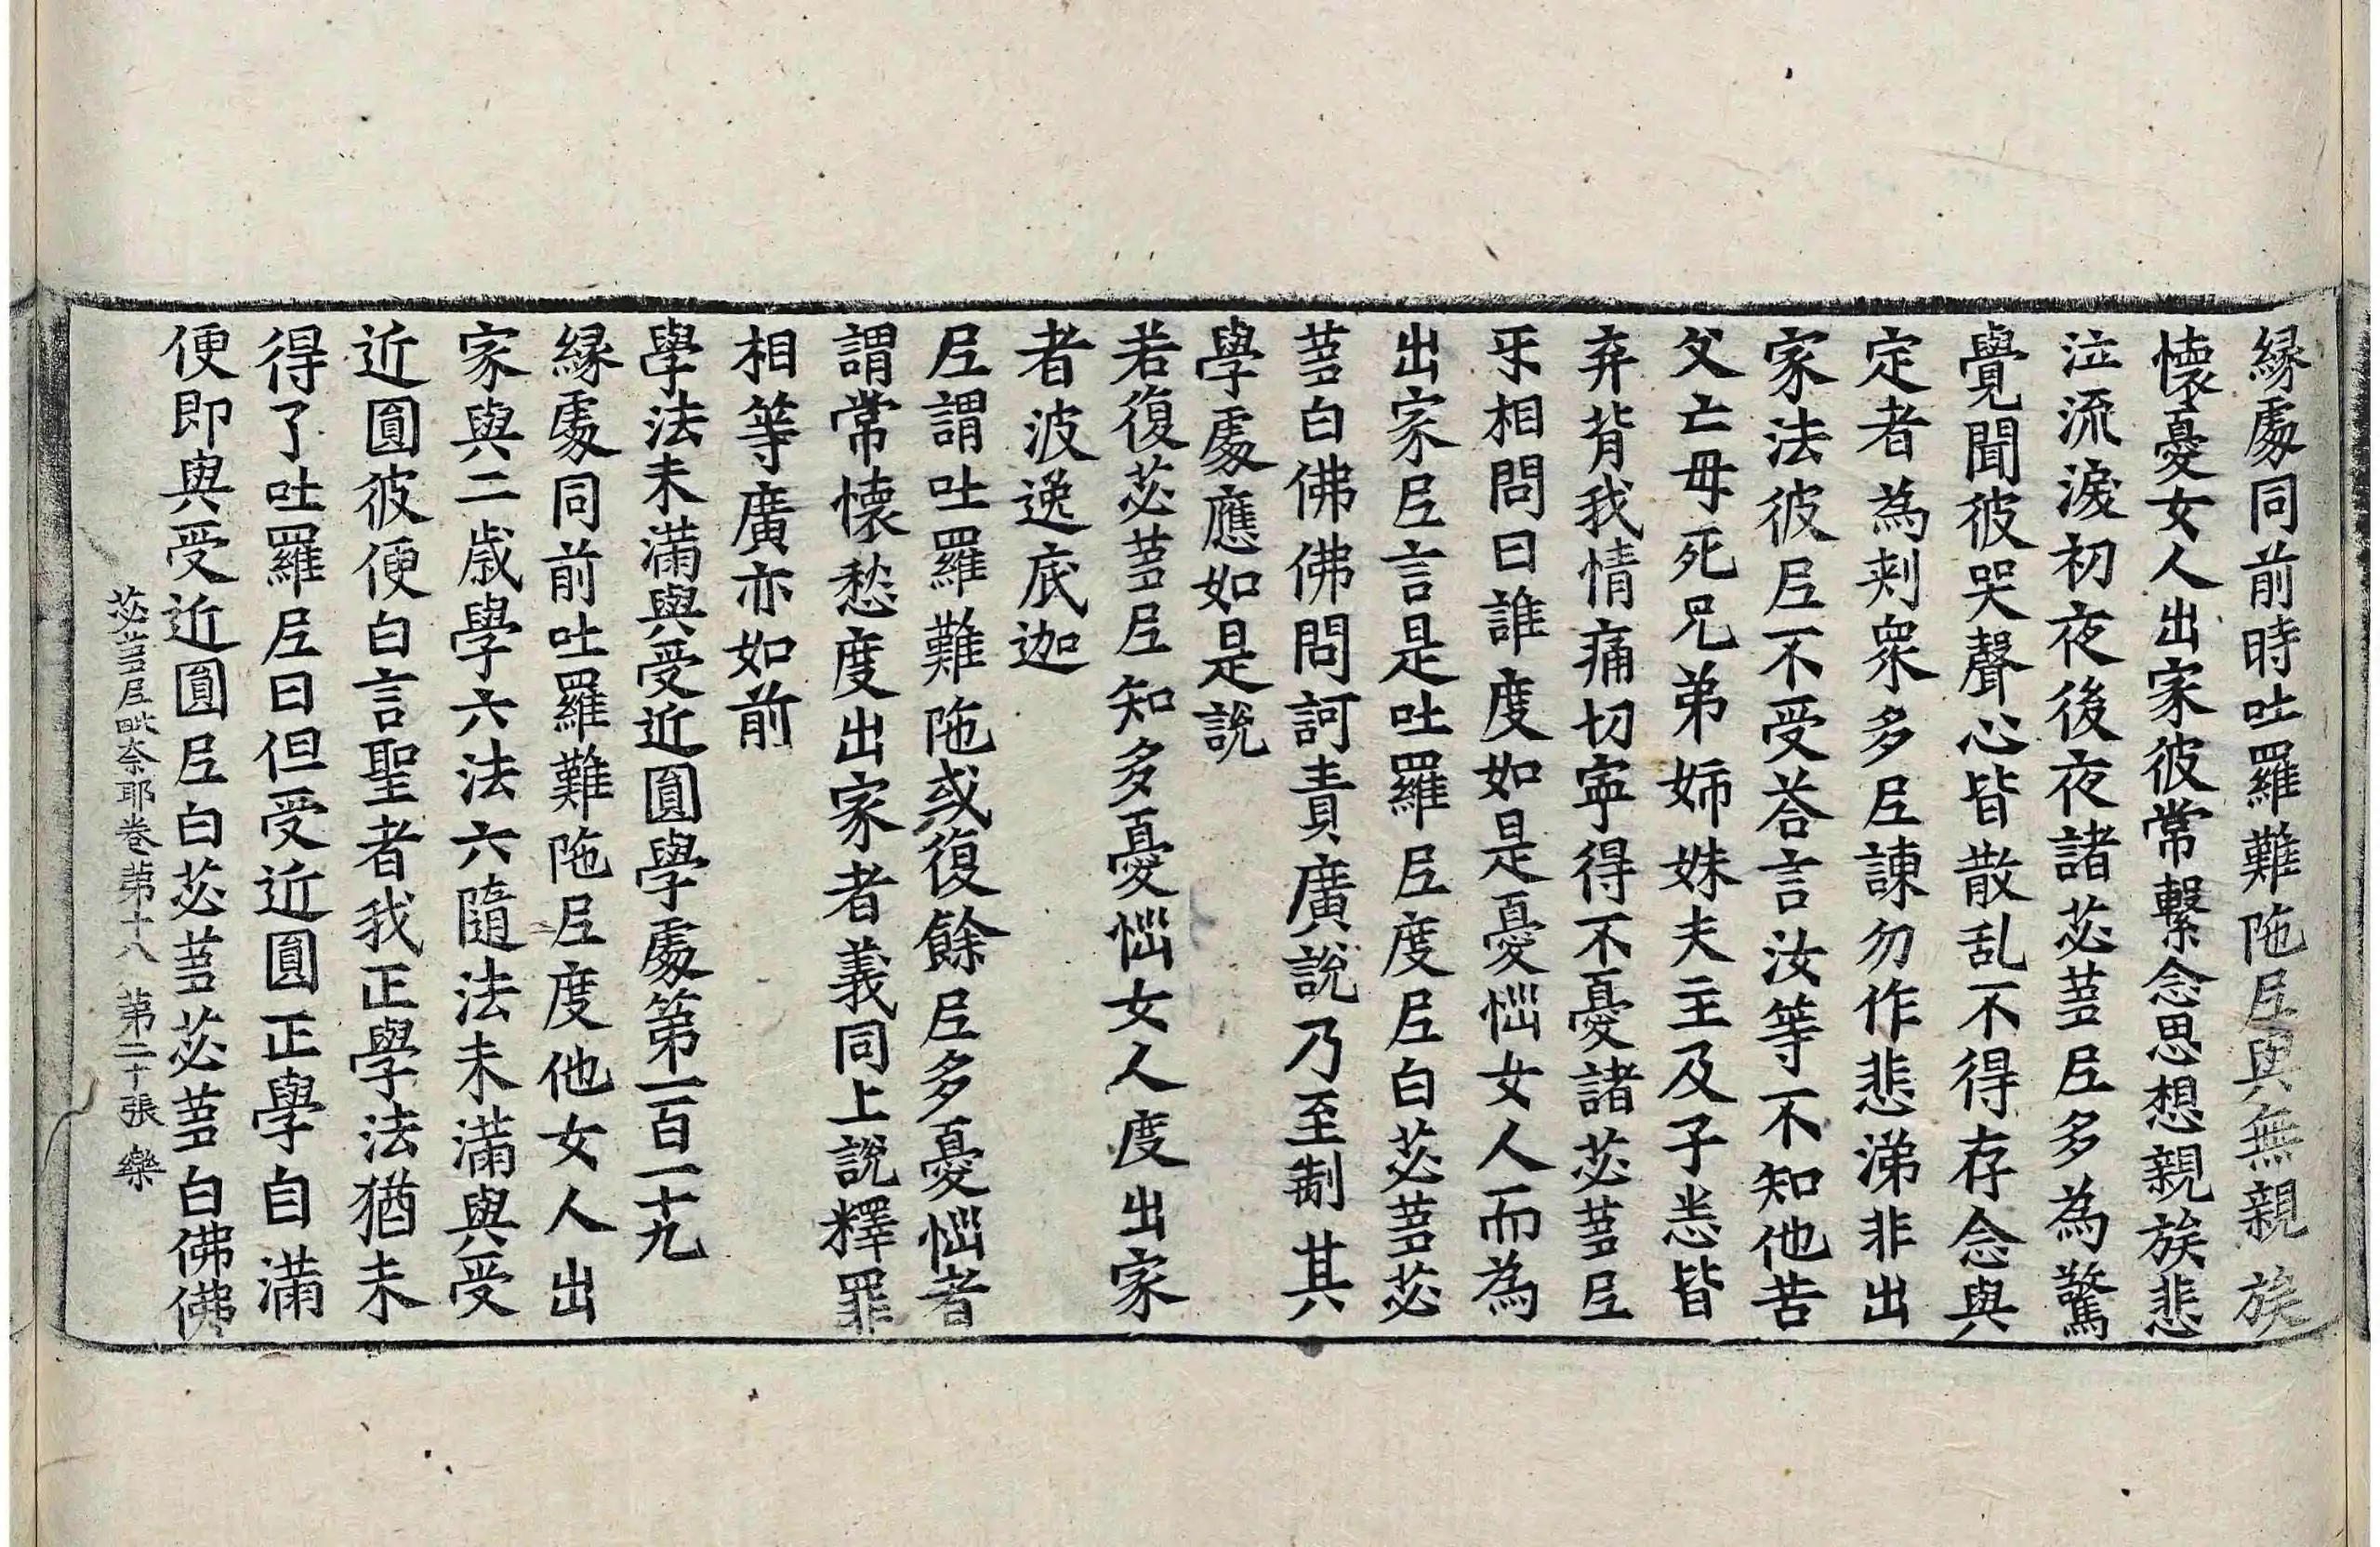 縁處同前時吐羅難陁𡰱與無親族
懷憂女人出家彼常繫念思想親族悲
泣流淚初夜後夜諸苾蒭𡰱多為驚
覺聞彼哭聲心皆散乱不得存念與
定者為刾衆多𡰱諫勿作悲涕非出
家法彼𡰱不受荅言汝等不知他苦
父亡母死兄弟姉妹夫主及子恙皆
弃背我情痛切寜得不憂諸苾蒭𡰱
乎相問曰誰度如是憂惱女人而為
出家𡰱言是吐羅𡰱度𡰱白苾蒭苾
蒭白佛佛問訶責廣說乃至制其
學處應如是說
若復苾蒭𡰱知多憂惱女人度出家
者波逸底迦
𡰱謂吐羅難陁或復餘𡰱多憂惱者
謂常懷愁度出家者義同上說釋罪
相等廣亦如前
學法未滿與受近圓學處第一百一十九
縁處同前吐羅難陁𡰱度他女人出
家與二歲學六法六隨法未滿與受
近圓彼便白言聖者我正學法猶未
得了吐羅𡰱曰但受近圓正學自滿
便即與受近圓𡰱白苾蒭苾蒭白佛佛
苾蒭𡰱毗奈耶卷第十八 第二十張 欒